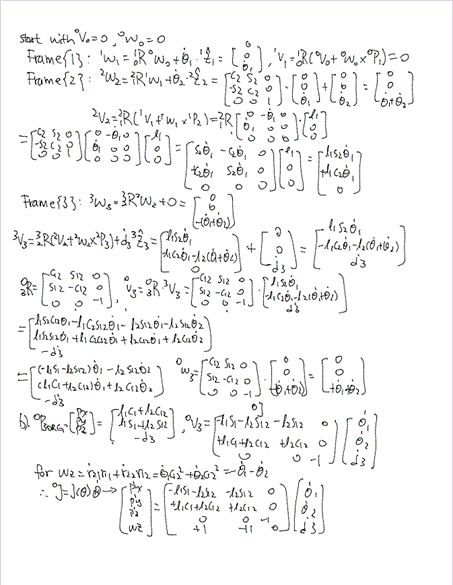 start with ⁰V₀=0, ⁰W₀=0
Frame{1}: ¹W₁ = ¹₀R ⁰W₀ + θ̇₁·¹Ẑ₁ = [0; 0; θ̇₁], ¹V₁ = ¹₀R(⁰V₀+⁰W₀×⁰P₁)=0
Frame{2}: ²W₂ = ²₁R ¹W₁ + θ̇₂·²Ẑ₂ = [C2 S2 0; -S2 C2 0; 0 0 1]·[0; 0; θ̇₁] + [0; 0; θ̇₂] = [0; 0; θ̇₁+θ̇₂]
²V₂ = ²₁R(¹V₁+¹W₁×¹P₂) = ²₁R·[0 -θ̇₁ 0; θ̇₁ 0 0; 0 0 0]·[l₁; 0; 0]
= [C2 S2 0; -S2 C2 0; 0 0 1][0 -θ̇₁ 0; θ̇₁ 0 0; 0 0 0][l₁; 0; 0] = [S2θ̇₁ -C2θ̇₁ 0; +C2θ̇₁ S2θ̇₁ 0; 0 0 0][l₁; 0; 0] = [l₁S2θ̇₁; +l₁C2θ̇₁; 0]
Frame{3}: ³W₃ = ³₂R ²W₂ + 0 = [0; 0; -(θ̇₁+θ̇₂)]
³V₃ = ³₂R(²V₂+²W₂×²P₃) + ḋ₃ ³Ẑ₃ = [l₁S2θ̇₁; -l₁C2θ̇₁-l₂(θ̇₁+θ̇₂); 0] + [0; 0; ḋ₃] = [l₁S2θ̇₁; -l₁C2θ̇₁-l₂(θ̇₁+θ̇₂); ḋ₃]
⁰₃R = [C12 S12 0; S12 -C12 0; 0 0 -1], ⁰V₃ = ⁰₃R ³V₃ = [C12 S12 0; S12 -C12 0; 0 0 -1]·[l₁S2θ̇₁; -l₁C2θ̇₁-l₂(θ̇₁+θ̇₂); ḋ₃]
= [l₁S2C12θ̇₁-l₁C2S12θ̇₁-l₂S12θ̇₁-l₂S12θ̇₂; l₁S2S12θ̇₁+l₁C2C12θ̇₁+l₂C12θ̇₁+l₂C12θ̇₂; -ḋ₃]
= [(-l₁S1-l₂S12)θ̇₁-l₂S12θ̇₂; (l₁C1+l₂C12)θ̇₁+l₂C12θ̇₂; -ḋ₃] ⁰W₃ = [C12 S12 0; S12 -C12 0; 0 0 -1]·[0; 0; -(θ̇₁+θ̇₂)] = [0; 0; +θ̇₁+θ̇₂]
b) ⁰P₃ORG = [Px; Py; Pz] = [l₁C1+l₂C12; l₁S1+l₂S12; -d3], ⁰V₃ = [-l₁S1-l₂S12 -l₂S12 0; +l₁C1+l₂C12 +l₂C12 0; 0 0 -1][θ̇₁; θ̇₂; ḋ₃]
for WZ =
∴ ⁰J=J(θ)θ̇ → [Ṗx; Ṗy; Ṗz; WZ] = [-l₁S1-l₂S12 -l₂S12 0; +l₁C1+l₂C12 +l₂C12 0; 0 0 -1; +1 +1 0][θ̇₁; θ̇₂; ḋ3]